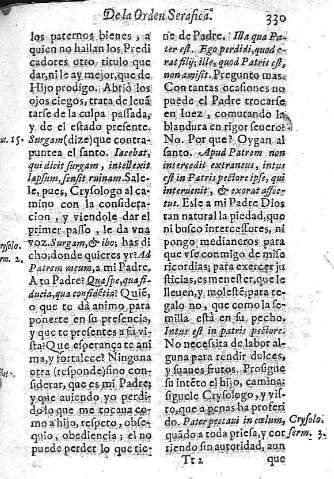 De la Orden Serafica.
330
los paternos bienes, a
quien no hallan los Predi
cadores otro titulo que
dar, ni le ay mejor, que de
Hijo prodigo. Abriò los
ojos ciegos, trata de leuã
tarse de la culpa passada,
y de el estado presente.
Surgam (dize) que contra-
puntea el santo. Iacebat,
qui dicit surgam, intellexit
lapsum, sensit ruinam. Sale-
le, pues, Crysologo al ca-
mino con la consideraciõ,
y viendole dar el
primer passo, le da vna
voz. Surgam, & ibo; has di
cho; donde quieres yr? Ad
Patrem meum, a mi Padre.
A tu Padre? Qua spe, qua fi-
ducia, qua confidẽtia? Quiẽ,
o que te dà animo para
ponerte en su presencia,
y que te presentes a su vi-
sta? Que esperança te ani
ma, y fortalece? Ninguna
otra (responde) sino con-
siderar, que es mi Padre;
y que auiendo yo perdi-
do lo que me tocaua co-
mo a hijo, respeto, obse-
quio, obediencia; el no
puede perder lo que tie-
uc. 15.
Crysolo.
erm. 2.
ne de Padre. Illa qua Pa-
ter est. Ego perdidi, quod e-
rat filij; ille, quod Patris est,
non amisit. Pregunto mas.
Con tantas ocasiones no
puede el Padre trocarse
en Iuez, comutando la
blandura en rigor seuero?
No. Por que? Oygan al
santo. Apud Patrem non
intercedit extraneus, intus
est in Patris pectore ipse, qui
interuenit, & exorat affec-
tus. Ese a mi Padre Dios
tan natural la piedad, que
ni busco intercessores, ni
pongo medianeros para
que vse conmigo de mise
ricordias; para exercer ju
sticias, es menester, que le
lleuen, y moleste; para re-
galo no, que como la se-
milla, està en su pecho.
Intus est in patris pectore.
No necessita de labor al-
guna para rendir dulces,
y suaues frutos. Prosigue
su intẽto el hijo, camina:
siguele Crysologo, y vis-
to, que apenas ha proferi
do. Pater peccaui in cœlum,
quãdo a toda priesa, y cor
riendo sin autoridad, aun
Crysolo.
serm. 3.
Tt 2
que